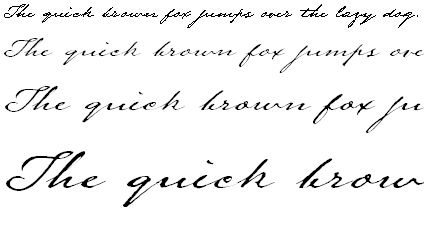 The quick brown fox jumps over the lazy dog.
The quick brown fox jumps ove
The quick brown fox ju
The quick brow